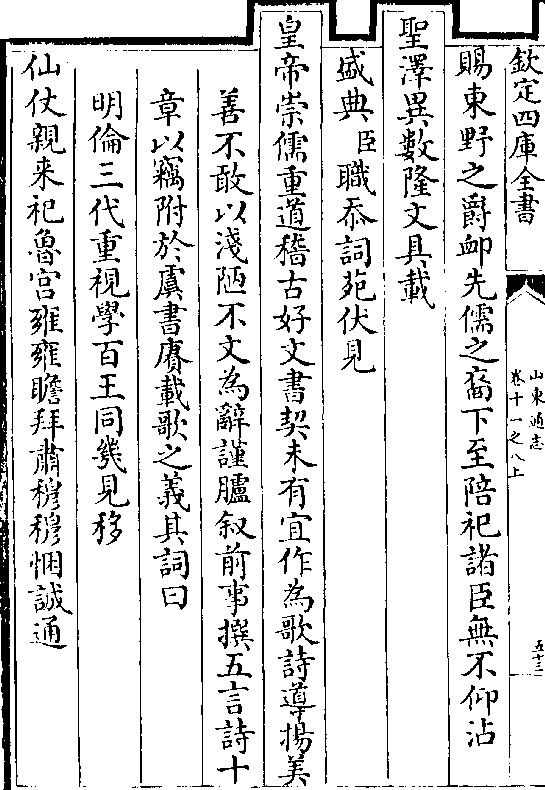 欽定四庫全書
山東通志
卷十一之八上
五十三
賜東野之爵卹先儒之裔下至陪祀諸臣無不仰沾
聖澤異數隆文具載
盛典臣職忝詞苑伏見
皇帝崇儒重道稽古好文書契未有宜作為歌詩導揚美
善不敢以淺陋不文為辭謹臚叙前事撰五言詩十
章以竊附於虞書賡載歌之義其詞曰
明倫三代重視學百王同幾見移
仙仗親来祀魯宫雍雍瞻拜肅穆穆悃誠通